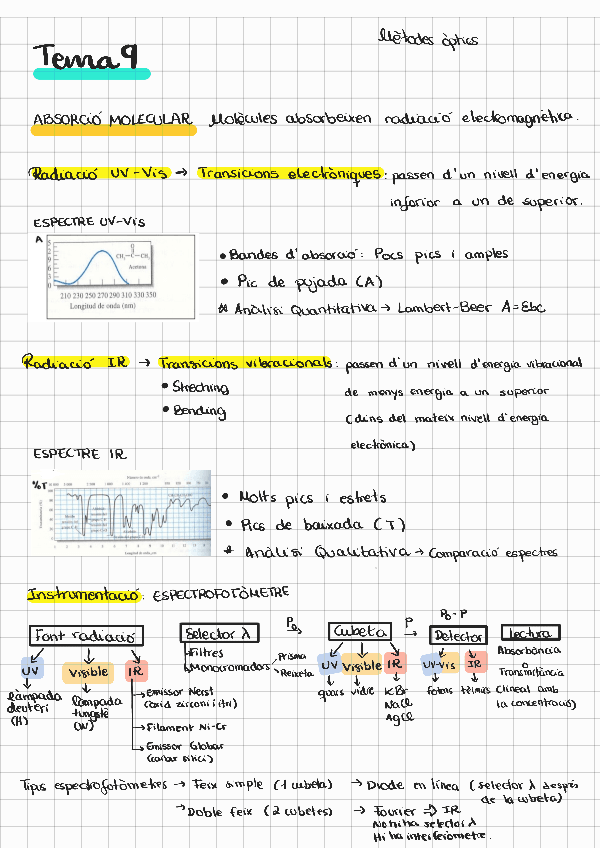 Mètodes òptics
Tema 9
ABSORCIÓ MOLECULAR Molècules absorbeixen radiació electromagnètica.
Radiació UV-Vis → Transicions electròniques: passen d'un nivell d'energia
inferior a un de superior.
ESPECTRE UV-Vis
A
CH₃-C-CH₃
Acetona
210 230 250 270 290 310 330 350
Longitud de onda (nm)
• Bandes d'absorció: Pocs pics i amples
• Pic de pujada (A)
* Anàlisi Quantitativa → Lambert-Beer A=Ebc
Radiació IR → Transicions vibracionals: passen d'un nivell d'energia vibracional
• Streching de menys energia a un superior
• Bending (dins del mateix nivell d'energia
electrònica)
ESPECTRE IR
%T
• Molts pics i estrets
• Pics de baixada (T)
* Anàlisi Qualitativa → Comparació espectres
Instrumentació: ESPECTROFOTÒMETRE
Font radiació
UV Visible IR
làmpada deuteri (H)
làmpada tungstè (W)
Emissor Nerst
Filament Ni-Cr
Emissor Globar
Selector λ
Filtres
Monocromadors
Prisma
P₀
Cubeta
UV Visible IR
quars vidre KBr
NaCl
AgCl
P
P₀-P
Detector
UV-Vis IR
fotons tèrmics
Lectura
Absorbància
o
Transmitància
(lineal amb
la concentració)
Tipus espectrofotòmetres → Feix simple (1 cubeta) → Diode en línea (selector λ després
de la cubeta)
→ Doble feix (2 cubetes) → Fourier ⇒ IR
No hi ha selector λ
Hi ha interferòmetre.